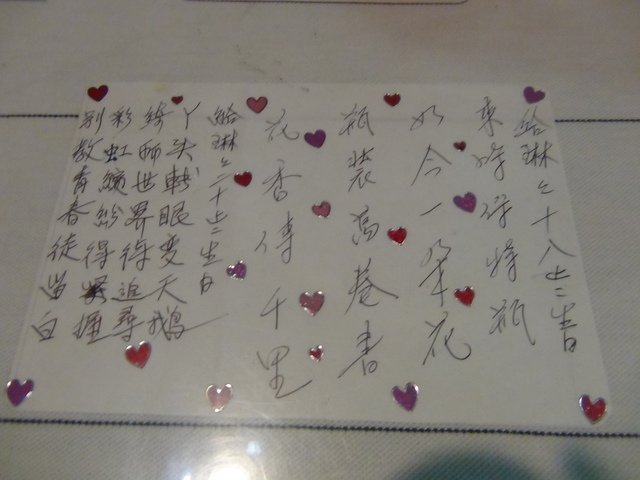 給琳之十八岁生日
來時 瓶
如今一朵花
瓶裝萬卷書
花香傳千里
給琳之二十岁生日
丫头轉眼变天鵝
世界得追尋
彩虹繽紛得
别教青春徒留白